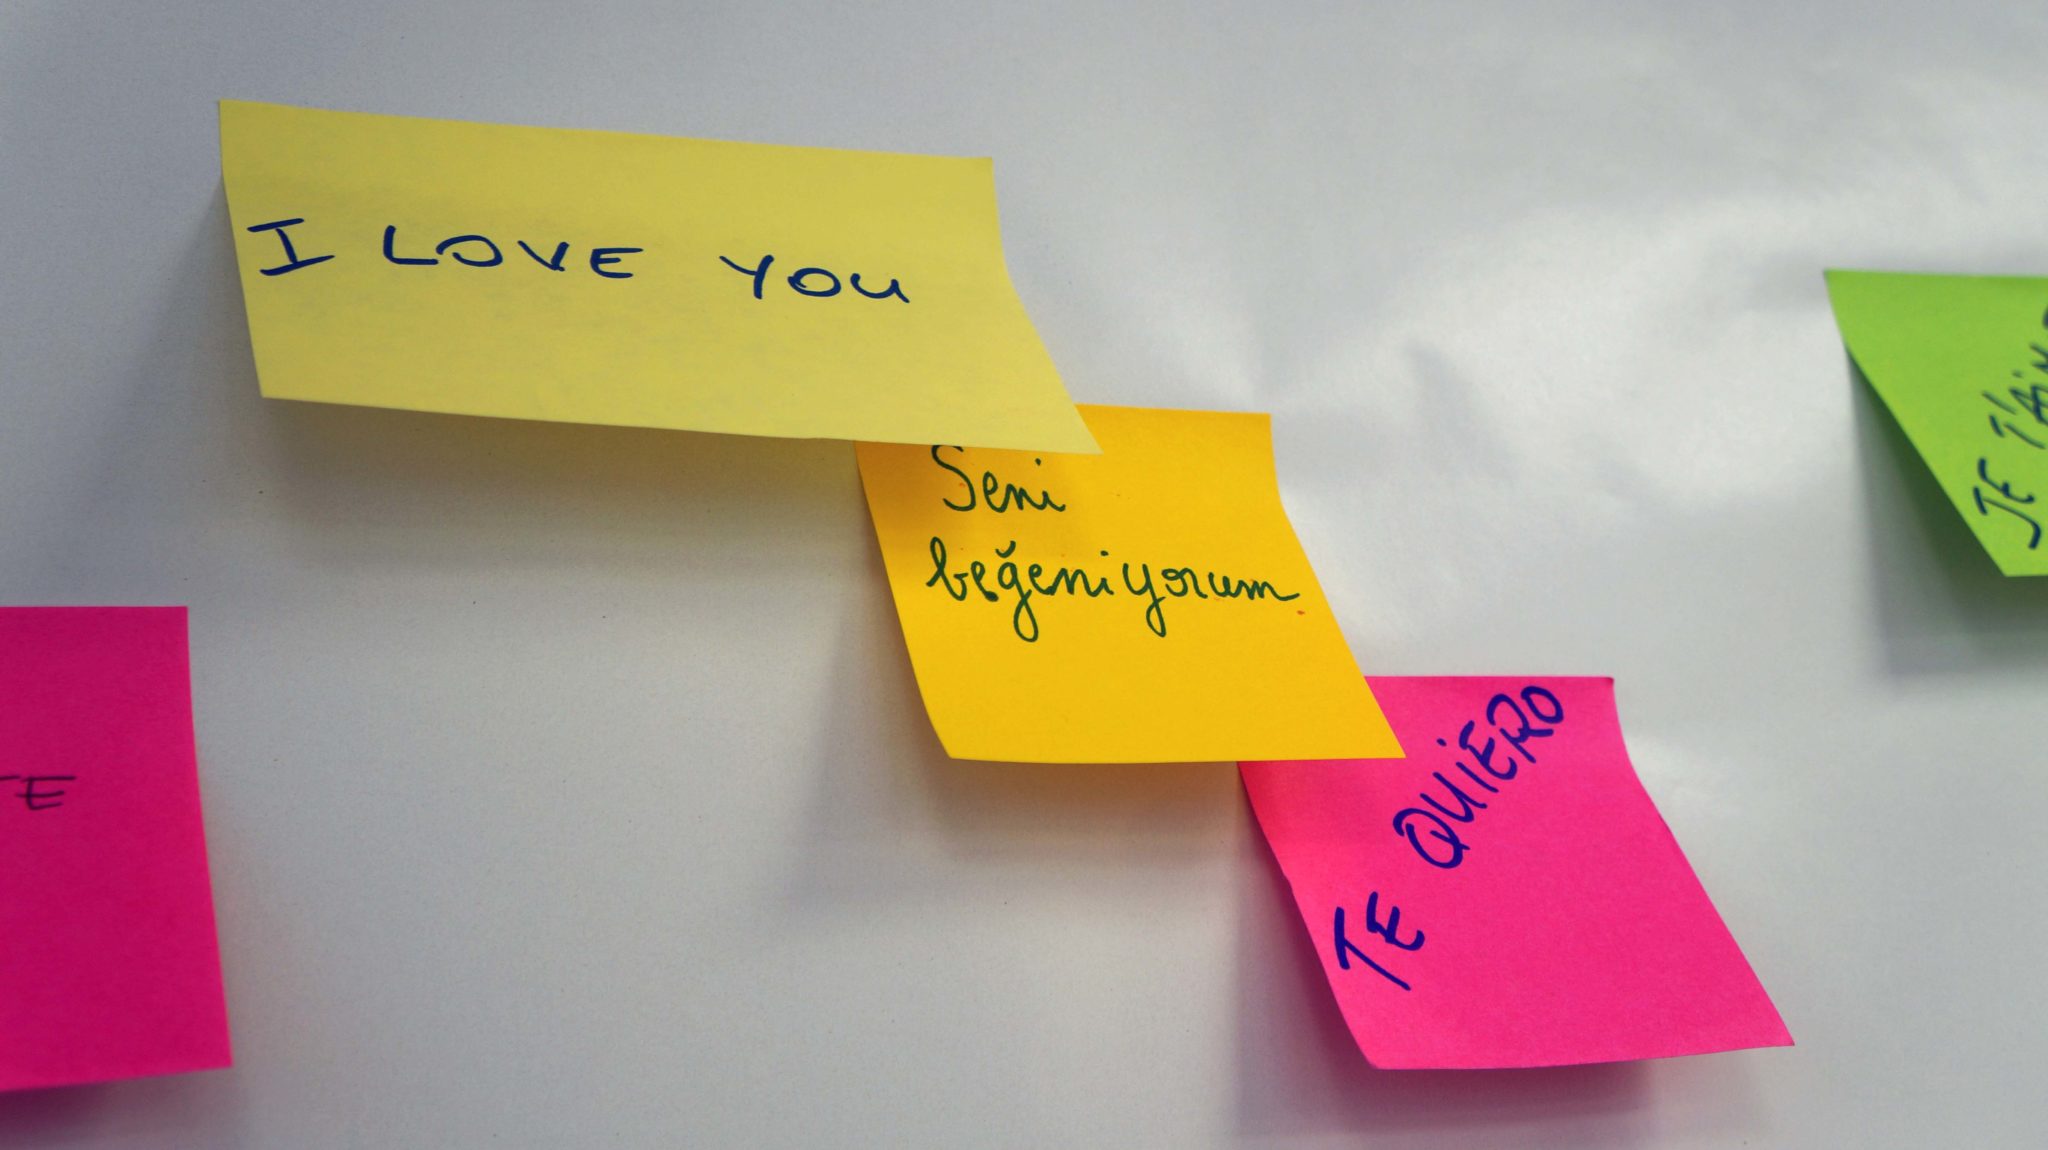 I LOVE YOU
Seni
beğeniyorum
TE QUIERO
JE